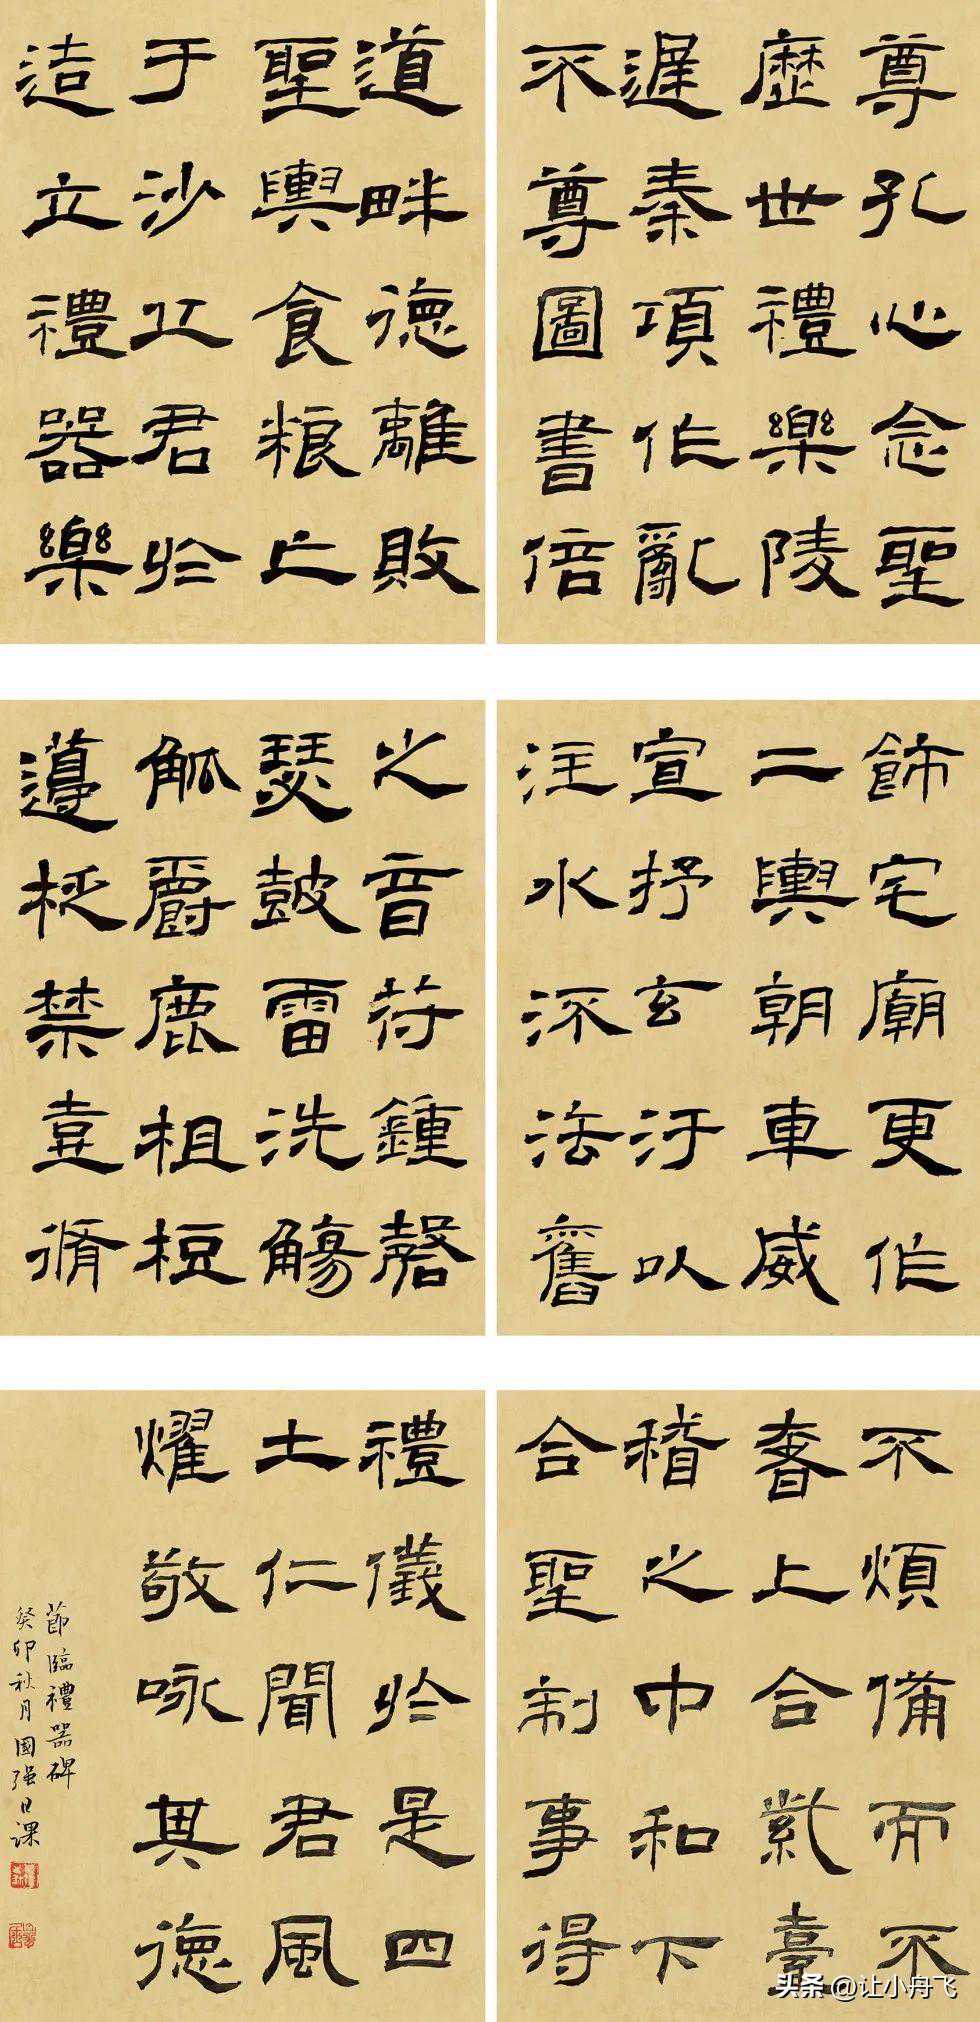 尊孔心念聖
歷世禮樂陵
遲秦項作亂
不尊圖書倍
道畔德離敗
聖輿食粮亡
于沙丘君於
造立禮器樂
飾宅廟更作
二輿朝車威
宣抒玄汙以
注水流法舊
之音符鍾磬
瑟鼓雷洗觴
觚爵鹿柤梪
籩柉禁壺脩
不煩備而不
奢上合紫臺
稽之中和下
合聖制事得
禮儀於是四
士仁聞君風
燿敬咏其德
節臨禮器碑
癸卯秋月國強日課
头条 @让小舟飞